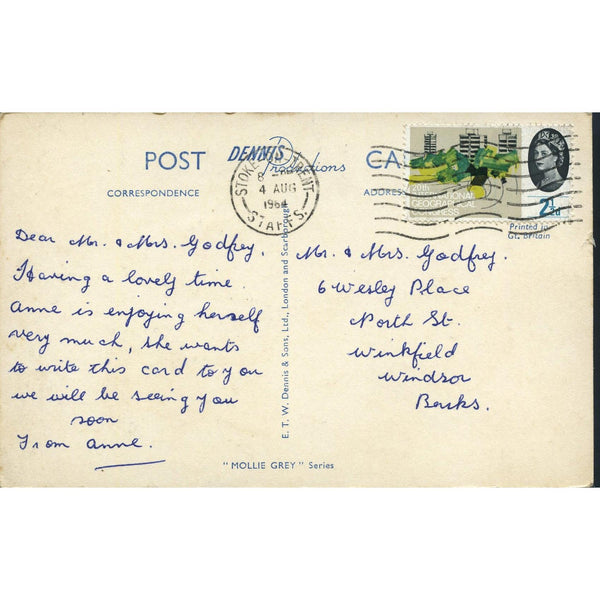 POST CARD
DENNIS Productions
CORRESPONDENCE
ADDRESS
STOKE-ON-TRENT
4 AUG
1964
STAFFS.
20th
INTERNATIONAL
GEOGRAPHICAL
CONGRESS
2½d
Printed in
Gt. Britain
Dear Mr. & Mrs. Godfrey,
Having a lovely time.
Anne is enjoying herself
very much, she wants
to write this card to you
we will be seeing you
soon
From Anne.
E. T. W. Dennis & Sons, Ltd., London and Scarborough
Mr. & Mrs. Godfrey.
6 Wesley Place
North St.
Winkfield
Windsor
Berks.
"MOLLIE GREY" Series